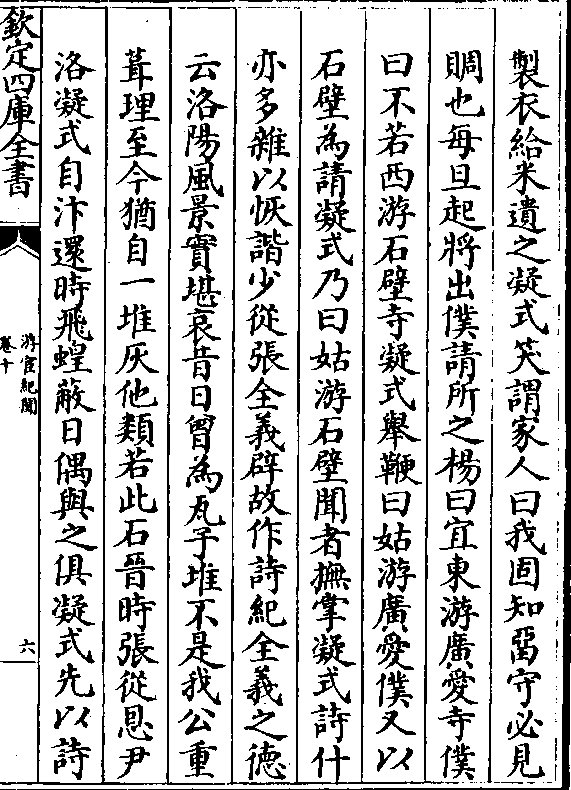 製衣給米遺之凝式笑謂家人曰我固知留守必見
賙也每旦起將出僕請所之楊曰宜東游廣愛寺僕
曰不若西游石壁寺凝式舉鞭曰姑游廣愛僕又以
石壁為請凝式乃曰姑游石壁聞者撫掌凝式詩什
亦多雜以恢諧少從張全義辟故作詩紀全義之德
云洛陽風景實堪哀昔日曾為瓦子堆不是我公重
葺理至今猶自一堆灰他類若此石晉時張從恩尹
洛凝式自汴還時飛蝗蔽日偶與之俱凝式先以詩
欽定四庫全書
游宦紀聞
卷十
六